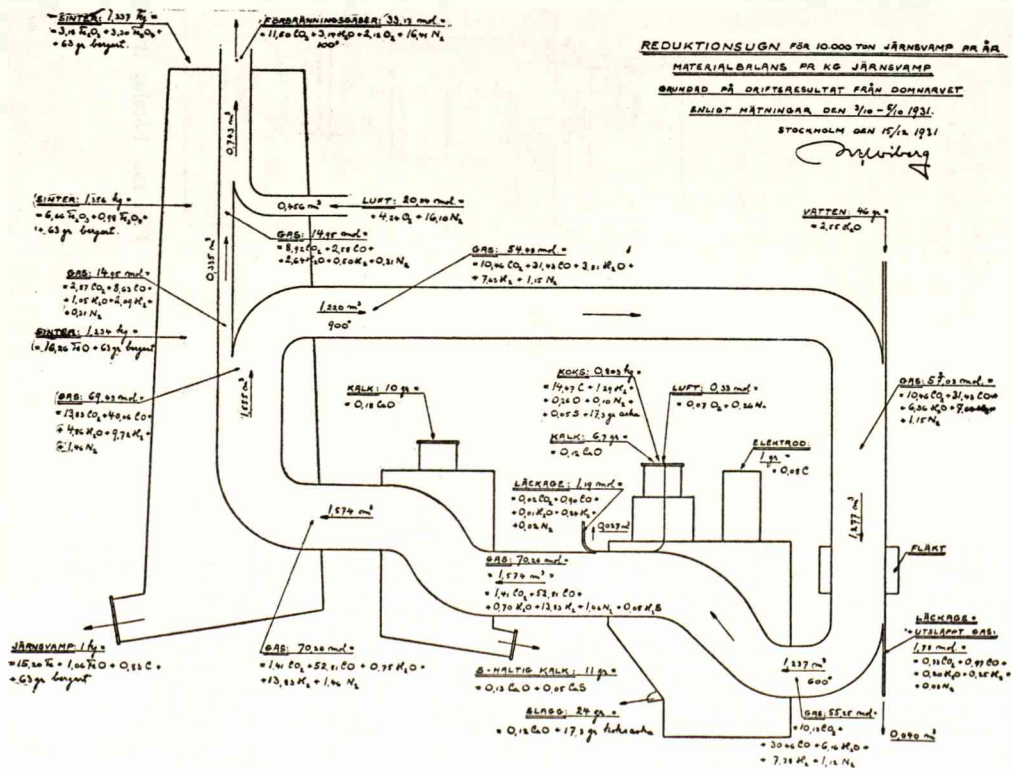 SINTER: 1,337 kg =
= 3,18 Fe₂O₃ + 3,20 Fe₃O₄ +
+ 63 gr bergart.
FÖRBRÄNNINGSGASER: 33,13 mol =
= 11,50 CO₂ + 3,14 H₂O + 2,12 O₂ + 16,41 N₂
100°
REDUKTIONSUGN FÖR 10.000 TON JÄRNSVAMP PR ÅR
MATERIALBALANS PR KG JÄRNSVAMP
GRUNDAD PÅ DRIFTSRESULTAT FRÅN DOMNARVET
ENLIGT MÄTNINGAR DEN 3/10 – 5/10 1931.
STOCKHOLM DEN 15/12 1931
Wiberg
0,743 m³
SINTER: 1,356 kg =
= 6,66 Fe₂O₃ + 0,98 Fe₃O₄ +
+ 63 gr bergart.
0,456 m³
LUFT: 20,34 mol =
= 4,24 O₂ + 16,10 N₂
VATTEN: 46 gr =
= 2,55 H₂O
GAS: 14,95 mol =
= 8,92 CO₂ + 2,58 CO +
+ 2,64 H₂O + 0,50 H₂ + 0,31 N₂
0,335 m³
GAS: 54,48 mol =
= 10,46 CO₂ + 31,43 CO + 3,81 H₂O +
+ 7,63 H₂ + 1,15 N₂
GAS: 14,95 mol =
= 2,87 CO₂ + 8,63 CO +
+ 1,05 H₂O + 2,09 H₂ +
+ 0,31 N₂
1,220 m³
900°
SINTER: 1,234 kg =
= 16,26 FeO + 63 gr bergart
GAS: 69,43 mol =
= 13,83 CO₂ + 40,06 CO +
+ 4,86 H₂O + 9,72 H₂ +
+ 1,46 N₂
1,555 m³
KALK: 10 gr =
= 0,18 CaO
KOKS: 0,203 kg =
= 14,47 C + 1,29 H₂ +
+ 0,26 O + 0,10 N₂ +
+ 0,05 S + 17,3 gr aska
LUFT: 0,33 mol =
= 0,07 O₂ + 0,26 N₂
GAS: 57,03 mol =
= 10,46 CO₂ + 31,43 CO +
+ 6,36 H₂O +
+ 1,15 N₂
KALK: 6,7 gr =
= 0,12 CaO
ELEKTROD:
1 gr =
= 0,08 C
LÄCKAGE: 1,19 mol =
= 0,02 CO₂ + 0,90 CO +
+ 0,01 H₂O + 0,24 H₂ +
+ 0,02 N₂
0,027 m³
1,277 m³
1,574 m³
FLÄKT
GAS: 70,26 mol =
= 1,574 m³ =
= 1,41 CO₂ + 52,81 CO +
+ 0,70 H₂O + 13,83 H₂ + 1,46 N₂ + 0,05 H₂S
JÄRNSVAMP: 1 kg =
= 15,20 Fe + 1,06 FeO + 0,83 C +
+ 63 gr bergart
GAS: 70,26 mol =
= 1,41 CO₂ + 52,81 CO + 0,75 H₂O +
+ 13,83 H₂ + 1,46 N₂
S-HALTIG KALK: 11 gr =
= 0,13 CaO + 0,05 CaS
SLAGG: 24 gr =
= 0,12 CaO + 17,3 gr koksaska
1,237 m³
600°
GAS: 55,25 mol =
= 10,13 CO₂ +
+ 30,46 CO + 6,16 H₂O +
+ 7,38 H₂ + 1,12 N₂
LÄCKAGE +
+ UTSLÄPPT GAS:
1,78 mol =
= 0,33 CO₂ + 0,97 CO +
+ 0,20 H₂O + 0,25 H₂ +
+ 0,03 N₂
0,040 m³